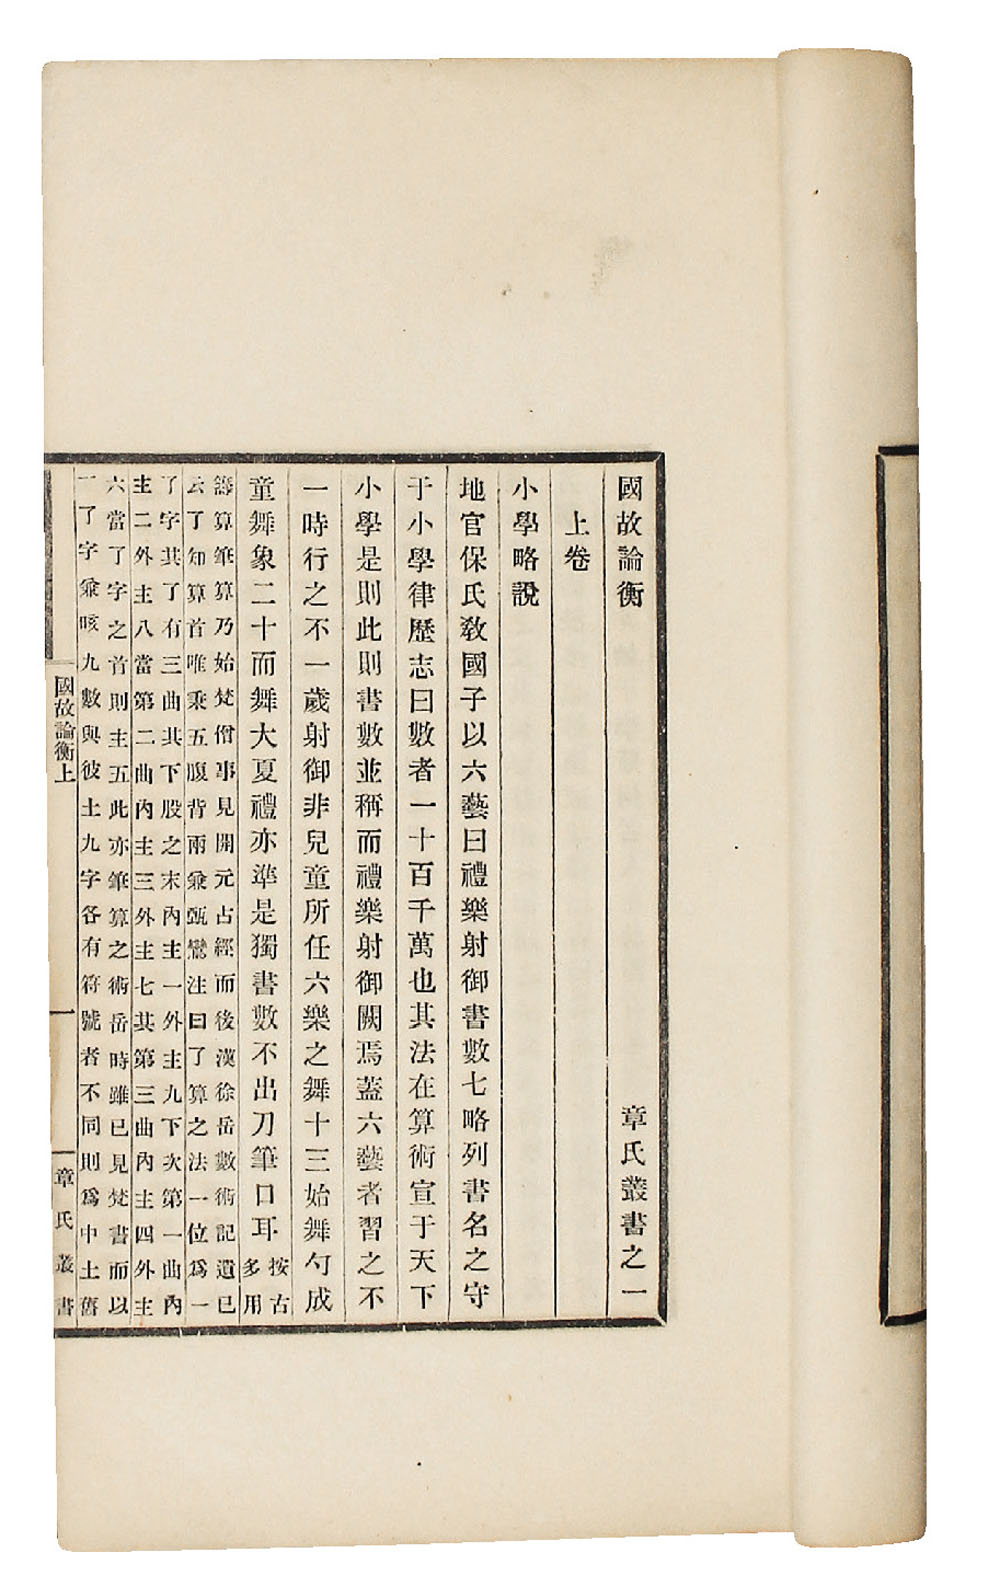 國故論衡 章氏叢書之一
上卷
小學略說
地官保氏敎國子以六藝曰禮樂射御書數七略列書名之守
于小學律歷志曰數者一十百千萬也其法在算術宣于天下
小學是則此則書數並稱而禮樂射御闕焉蓋六藝者習之不
一時行之不一歲射御非兒童所任六樂之舞十三始舞勺成
童舞象二十而舞大夏禮亦準是獨書數不出刀筆口耳
按古
多用
籌算筆算乃始梵僧事見開元占經而後漢徐岳數術記遺已
云了知算首唯秉五腹背兩兼甄鸞注曰了算之法一位爲一
了字其了有三曲其下股之末內主一外主九下次第一曲內
主二外主八當第二曲內主三外主七其第三曲內主四外主
六當了字之首則主五此亦筆算之術岳時雖已見梵書而以
一了字兼晐九數與彼土九字各有符號者不同則爲中土舊
國故論衡上
一
章氏叢書